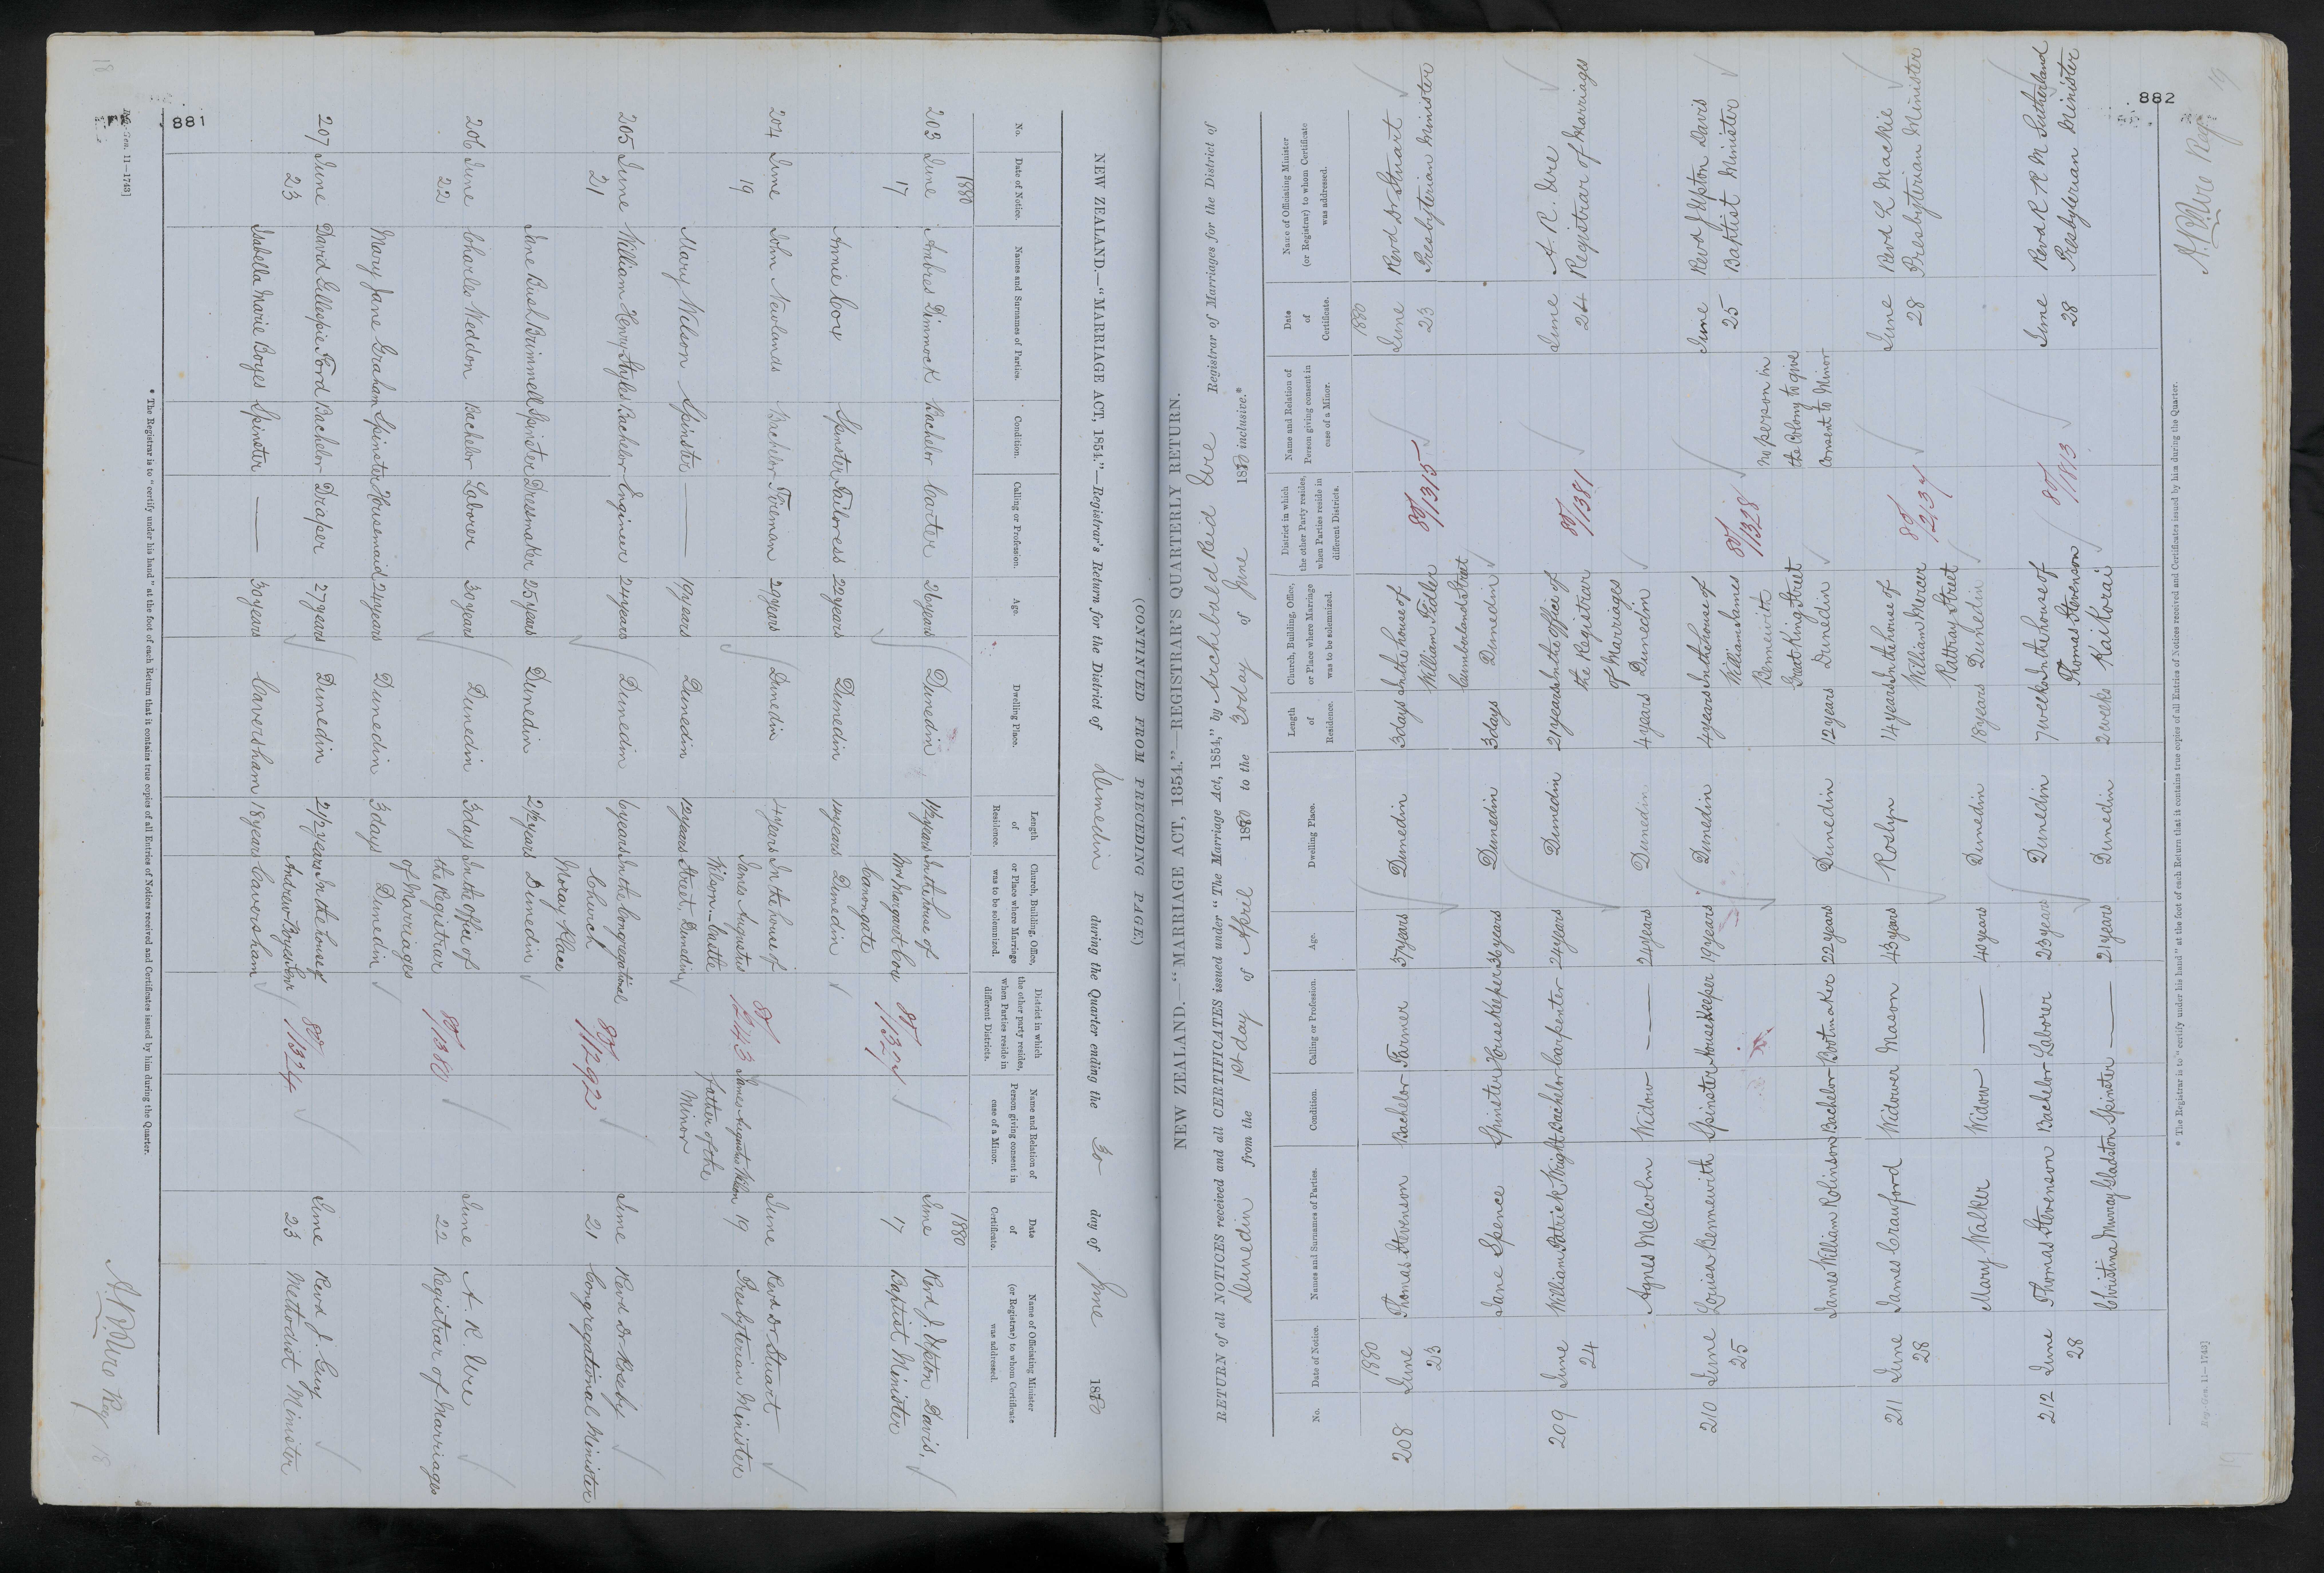 (CONTINUED FROM PRECEDING PAGE)
NEW ZEALAND.—"MARRIAGE ACT, 1854."—Registrar's Return for the District of Dunedin during the Quarter ending the 30 day of June 1880
No. Date of Notice. Names and Surnames of Parties. Condition. Calling or Profession. Age. Dwelling Place. Length of Residence. Church, Building, Office, or Place where Marriage was to be solemnized. District in which the other party resides, when Parties reside in different Districts. Name and Relation of Person giving consent in case of a Minor. Date of Certificate. Name of Officiating Minister (or Registrar) to whom Certificate was addressed.
1880 1880
203 June Ambres Dimmock Bachelor Carter 26 years Dunedin 1½ years In the house of June Revd J. Upton Davis,
17 Mrs Margaret Cox 80/1327 17 Baptist Minister
Canongate
Annie Cox Spinster Tailoress 22 years Dunedin 14 years Dunedin
204 June John Newlands Bachelor Fireman 29 years Dunedin 4 years In the house of June Revd Dr Stuart
19 James Augustus 80/1243 James Augustus Wilson 19 Presbyterian Minister
Wilson Castle father of the
Mary Wilson Spinster — 19 years Dunedin 12 years Street Dunedin Minor
205 June William Henry Styles Bachelor Engineer 24 years Dunedin 6 years In the Congregational June Revd Dr Roseby
21 Church 80/1292 21 Congregational Minister
Moray Place
Jane Bush Brimmell Spinster Dressmaker 25 years Dunedin 2½ years Dunedin
206 June Charles Weddon Bachelor Laborer 30 years Dunedin 3 days In the Office of June A. R. Ure
22 the Registrar 80/1380 22 Registrar of Marriages
of Marriages
Mary Jane Graham Spinster Housemaid 24 years Dunedin 3 days Dunedin
207 June David Gillespie Ford Bachelor Draper 27 years Dunedin 2½ years In the house of June Revd J. Guy
23 Andrew Boyes Senr 80/1324 23 Methodist Minister
Isabella Marie Boyes Spinster — 30 years Caversham 18 years Caversham
* The Registrar is to "certify under his hand" at the foot of each Return that it contains true copies of all Entries of Notices received and Certificates issued by him during the Quarter.
Reg.-Gen. 11—1743]
A. R. Ure Reg
18
881
18
NEW ZEALAND.—"MARRIAGE ACT, 1854."—REGISTRAR'S QUARTERLY RETURN.
RETURN of all NOTICES received and all CERTIFICATES issued under "The Marriage Act, 1854," by Archibald Reid Ure Registrar of Marriages for the District of
Dunedin from the 1st day of April 1880 to the 30 day of June 1880 inclusive.*
No. Date of Notice. Names and Surnames of Parties. Condition. Calling or Profession. Age. Dwelling Place. Length of Residence. Church, Building, Office, or Place where Marriage was to be solemnized. District in which the other Party resides, when Parties reside in different Districts. Name and Relation of Person giving consent in case of a Minor. Date of Certificate. Name of Officiating Minister (or Registrar) to whom Certificate was addressed.
1880 1880
208 June Thomas Stevenson Bachelor Farmer 37 years Dunedin 3 days In the house of June Revd Dr Stuart
23 William Fidler 80/1315 23 Presbyterian Minister
Cumberland Street
Jane Spence Spinster Housekeeper 36 years Dunedin 3 days Dunedin
209 June William Patrick Wright Bachelor Carpenter 24 years Dunedin 21 years In the office of June A. R. Ure
24 the Registrar 80/1381 24 Registrar of Marriages
of Marriages
Agnes Malcolm Widow — 24 years Dunedin 4 years Dunedin
210 June Louisa Bennewith Spinster Housekeeper 19 years Dunedin 4 years In the house of June Revd J Upton Davis
25 William James 80/1328 25 Baptist Minister
Bennewith No person in
Great King Street the Colony to give
James William Robinson Bachelor Bootmaker 22 years Dunedin 12 years Dunedin consent to Minor
211 June James Crawford Widower Mason 43 years Roslyn 14 years In the house of June Revd L Mackie
28 William Mercer 80/2137 28 Presbyterian Minister
Rattray Street
Mary Walker Widow — 40 years Dunedin 18 years Dunedin
212 June Thomas Stevenson Bachelor Laborer 23 years Dunedin 7 weeks In the house of June Revd R. R. M Sutherland
28 Thomas Stevenson 80/1813 28 Presbyterian Minister
Christina Murray Gladston Spinster — 21 years Dunedin 2 weeks Kaikorai
* The Registrar is to "certify under his hand" at the foot of each Return that it contains true copies of all Entries of Notices received and Certificates issued by him during the Quarter.
Reg.-Gen. 11—1743]
A. R. Ure Reg.
19
882
19